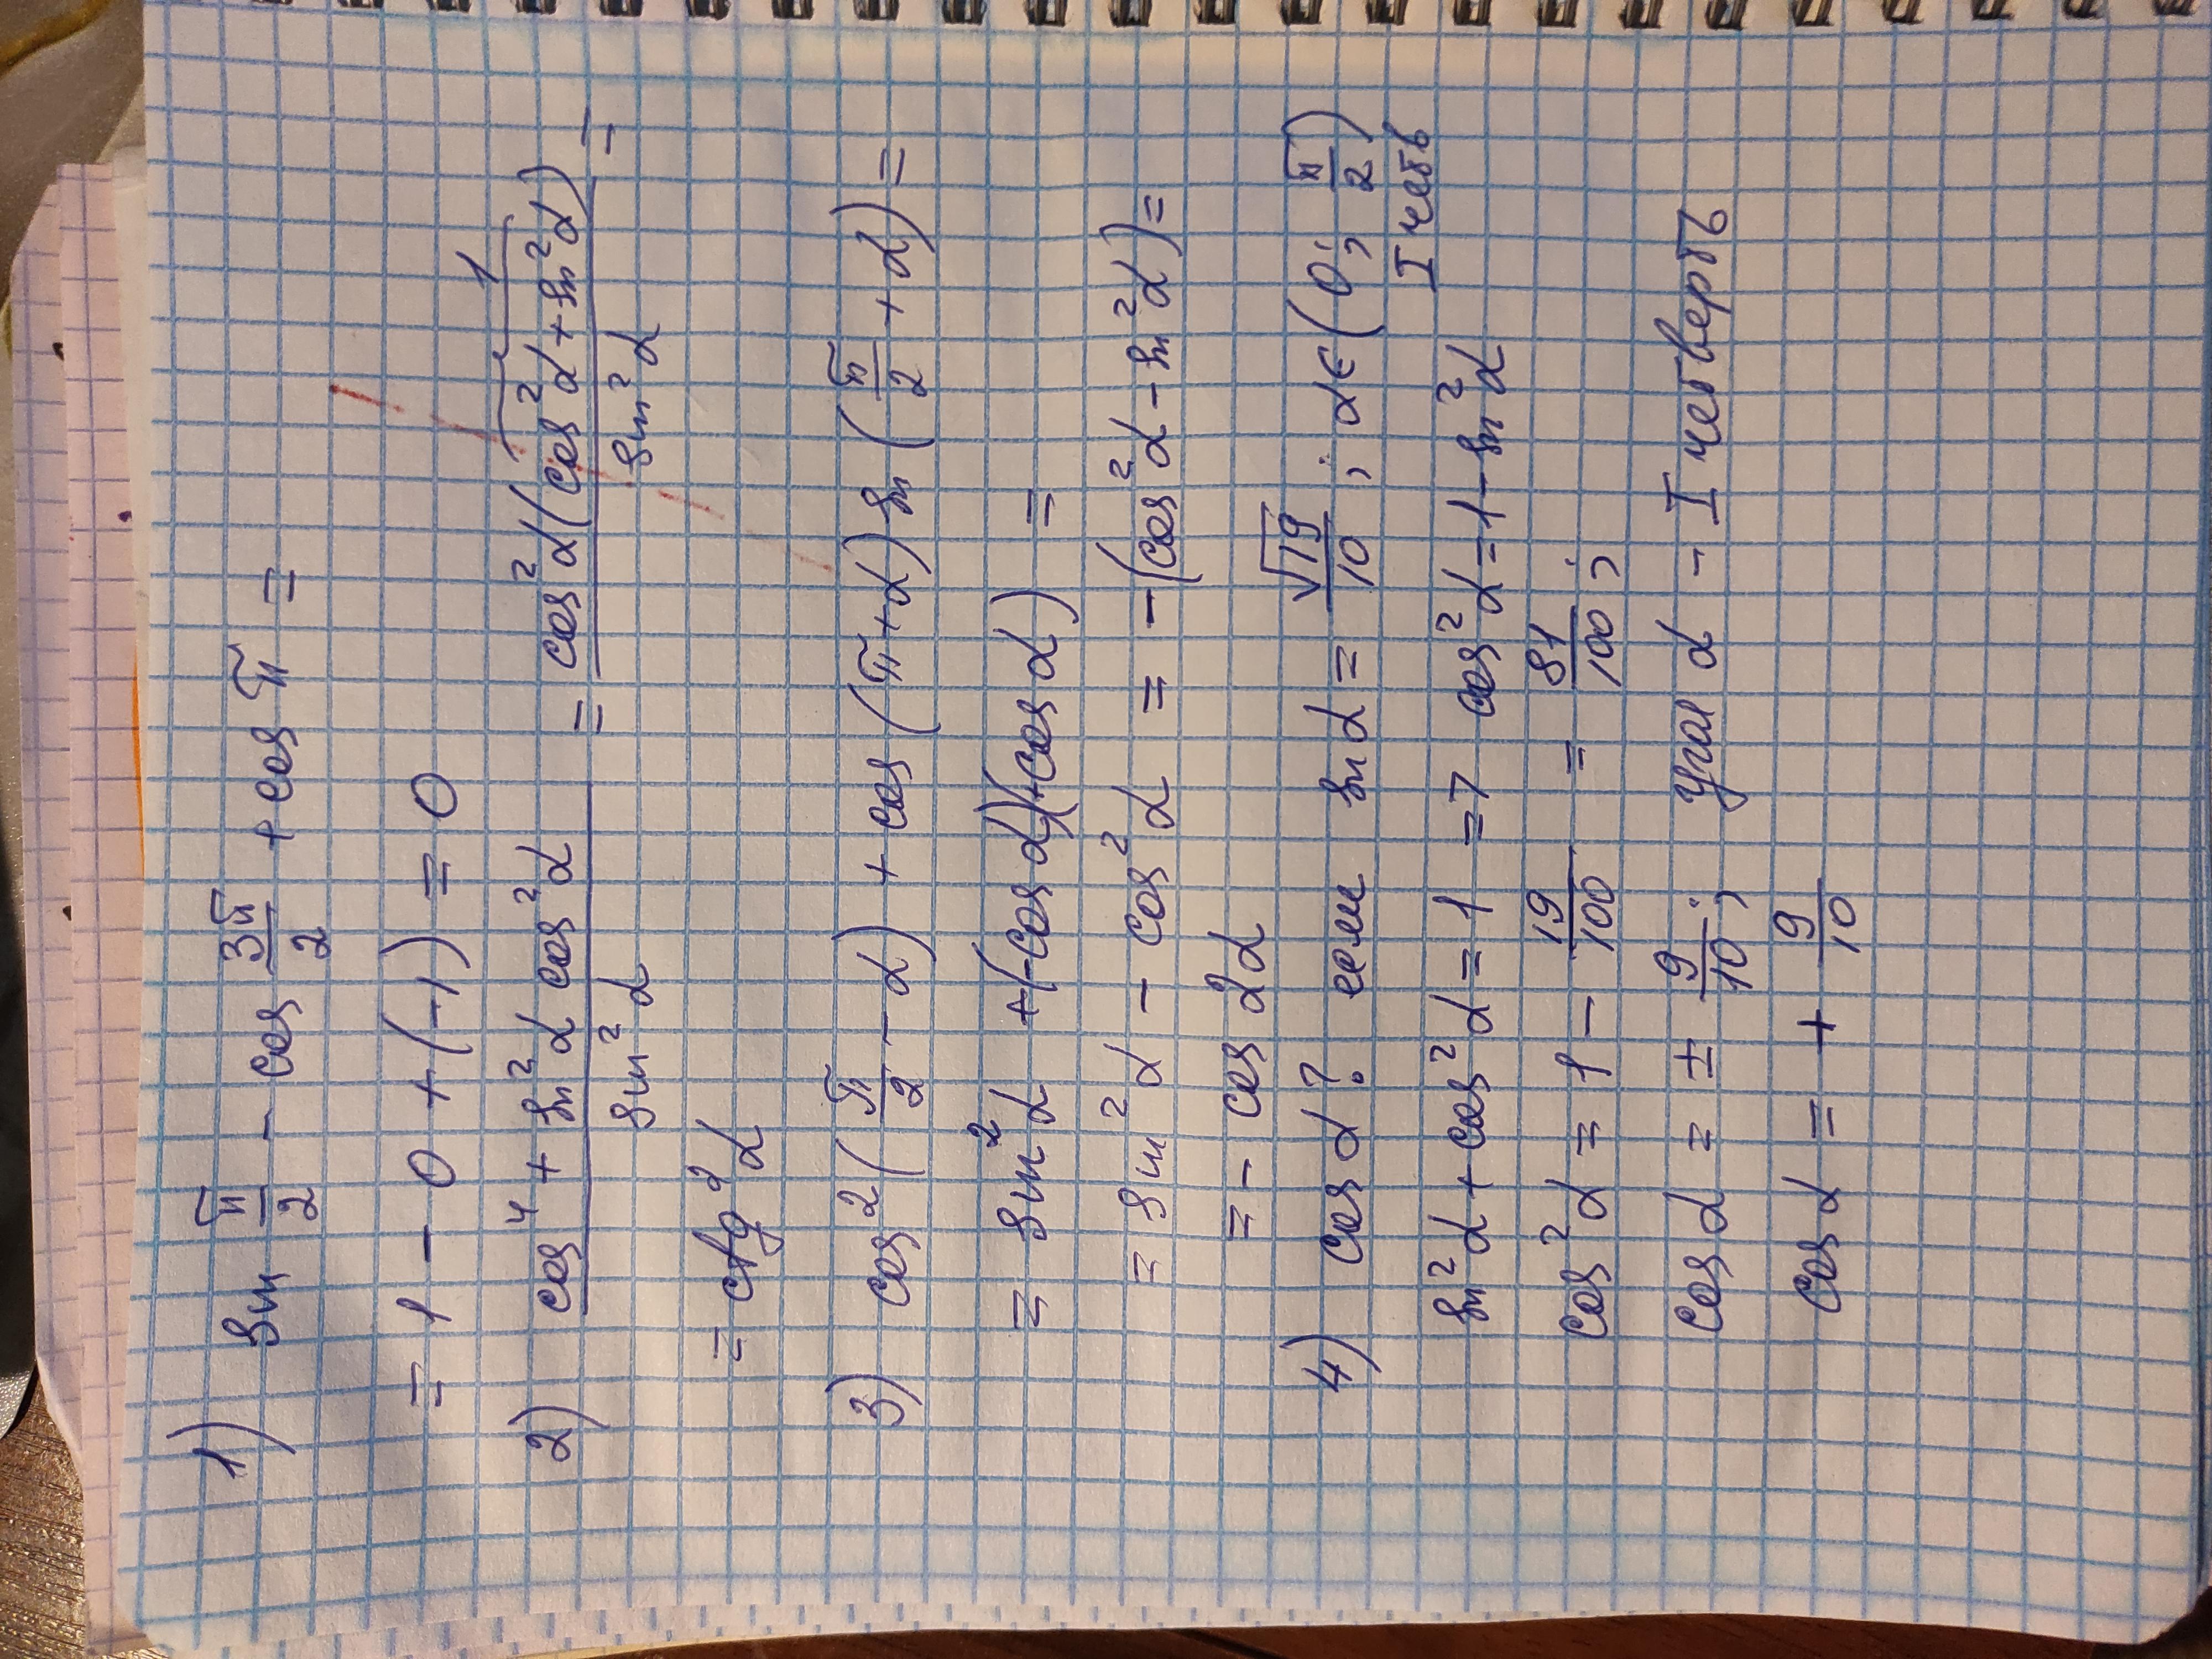 1) sin π/2 - cos 3π/2 + cos π =
= 1 - 0 + (-1) = 0
2) (cos⁴ + sin²α cos²α)/(sin²α) = (cos²α(cos²α + sin²α))/(sin²α) =
1
= ctg²α
3) cos²(π/2 - α) + cos(π + α) sin(π/2 + α) =
= sin²α + (-cos α)(+cos α) =
= sin²α - cos²α = -(cos²α - sin²α) =
= - cos 2α
4) cos α? если sin α = √19/10 ; α ∈ (0; π/2)
I четв
sin²α + cos²α = 1 => cos²α = 1 - sin²α
cos²α = 1 - 19/100 = 81/100 ;
cos α = ± 9/10 ; угол α - I четверть
cos α = + 9/10